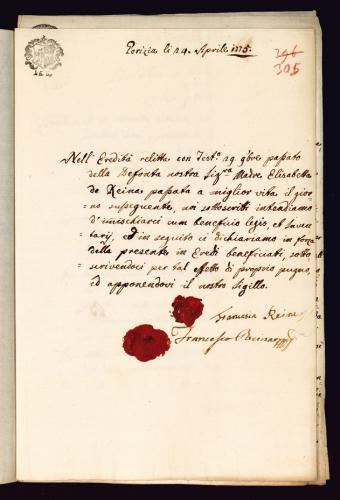 Gorizia li 24. Aprile 1775.
305
Nell' Eredità relitta con Test.º 29 9bre passato
della Defonta nostra Sig.ra Madre Elisabetta
de Reina passata a miglior vita il gior=
=no susseguente, noi sottoscritti intendiamo
d'immischiarci cum beneficio legis, et Inven=
=tarij, ed in seguito ci dichiariamo in forza
della presente in Eredi beneficiati, sotto=
scrivendoci per tal effetto di proprio pugno,
ed apponendovi il nostro Sigillo.
Francesca Reina
Francesco